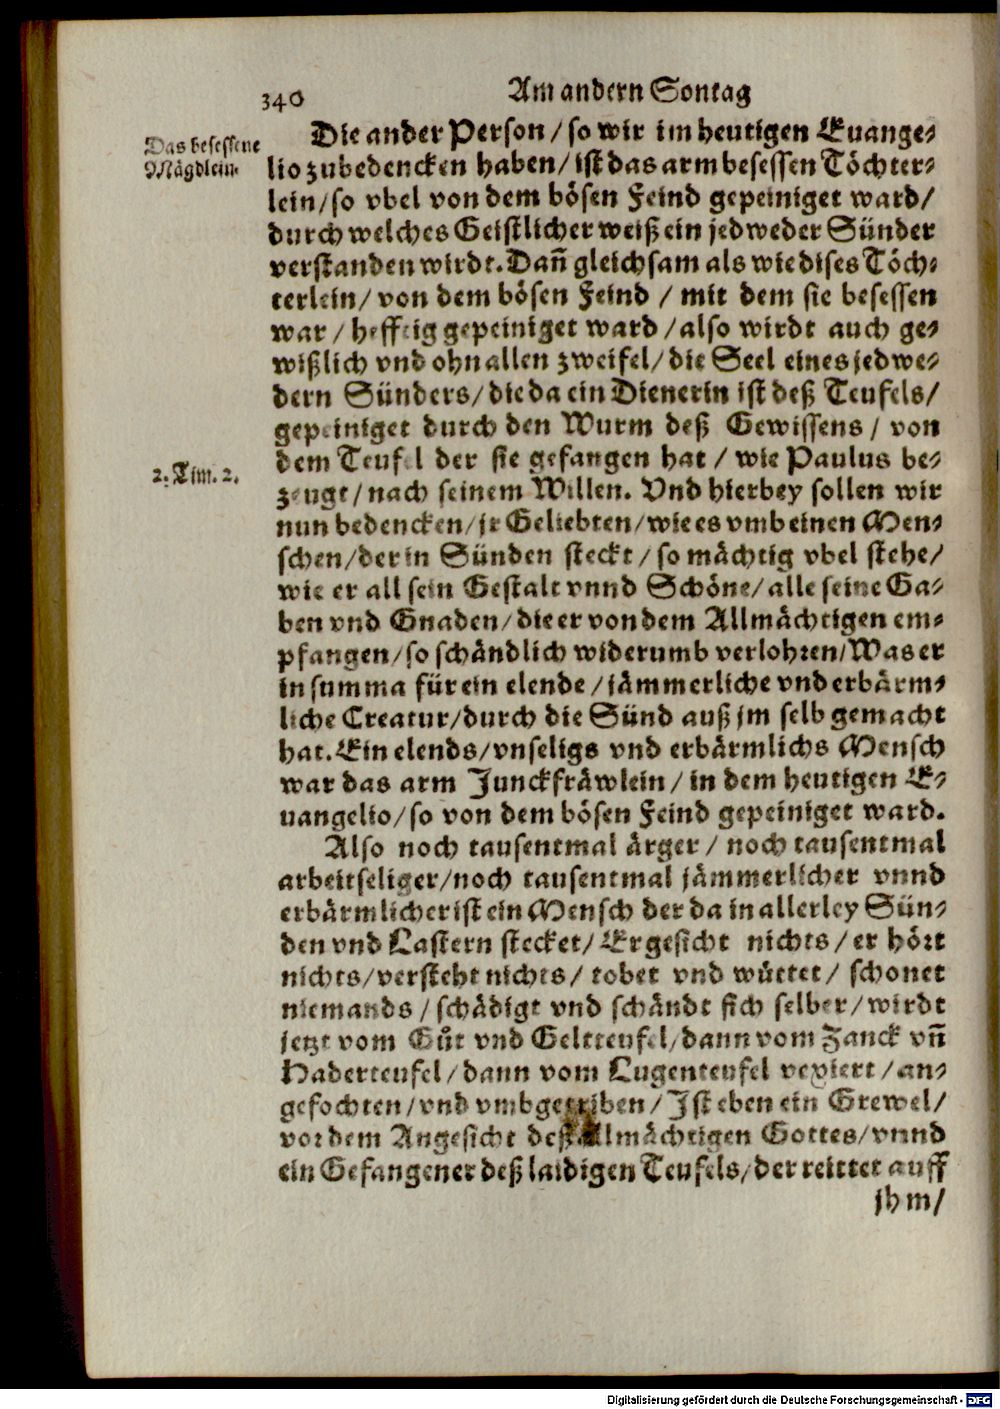 340 Am andern Sontag
Das besessene
Mägdlein.
Die ander Person / so wir im heutigen Euange-
lio zubedencken haben / ist das arm besessen Töchter-
lein / so vbel von dem bösen Feind gepeiniget ward /
durch welches Geistlicher weiß ein jedweder Sünder
verstanden wirdt. Dañ gleichsam als wie dises Töch-
terlein / von dem bösen Feind / mit dem sie besessen
war / hefftig gepeiniget ward / also wirdt auch ge-
wißlich vnd ohn allen zweifel / die Seel eines jedwe-
dern Sünders / die da ein Dienerin ist deß Teufels /
gepeiniget durch den Wurm deß Gewissens / von
dem Teufel der sie gefangen hat / wie Paulus be-
2. Tim. 2.
zeugt / nach seinem Willen. Vnd hierbey sollen wir
nun bedencken / jr Geliebten / wie es vmb einen Men-
schen / der in Sünden steckt / so mächtig vbel stehe /
wie er all sein Gestalt vnnd Schöne / alle seine Ga-
ben vnd Gnaden / die er von dem Allmächtigen em-
pfangen / so schändlich widerumb verlohren / Was er
in summa für ein elende / jämmerliche vnd erbärm-
liche Creatur / durch die Sünd auß jm selb gemacht
hat. Ein elends / vnseligs vnd erbärmlichs Mensch
war das arm Junckfräwlein / in dem heutigen E-
uangelio / so von dem bösen Feind gepeiniget ward.
Also noch tausentmal ärger / noch tausentmal
arbeitseliger / noch tausentmal jämmerlicher vnnd
erbärmlicher ist ein Mensch der da in allerley Sün-
den vnd Lastern stecket / Er gesicht nichts / er hört
nichts / versteht nichts / tobet vnd wüttet / schonet
niemands / schädigt vnd schändt sich selber / wirdt
jetzt vom Gůt vnd Geltteufel / dann vom Zanck vñ
Haderteufel / dann vom Lugenteufel vexiert / an-
gefochten / vnd vmbgetriben / Ist eben ein Grewel /
vor dem Angesicht deß Allmächtigen Gottes / vnnd
ein Gefangener deß laidigen Teufels / der reittet auff
jhm /
Digitalisierung gefördert durch die Deutsche Forschungsgemeinschaft - DFG